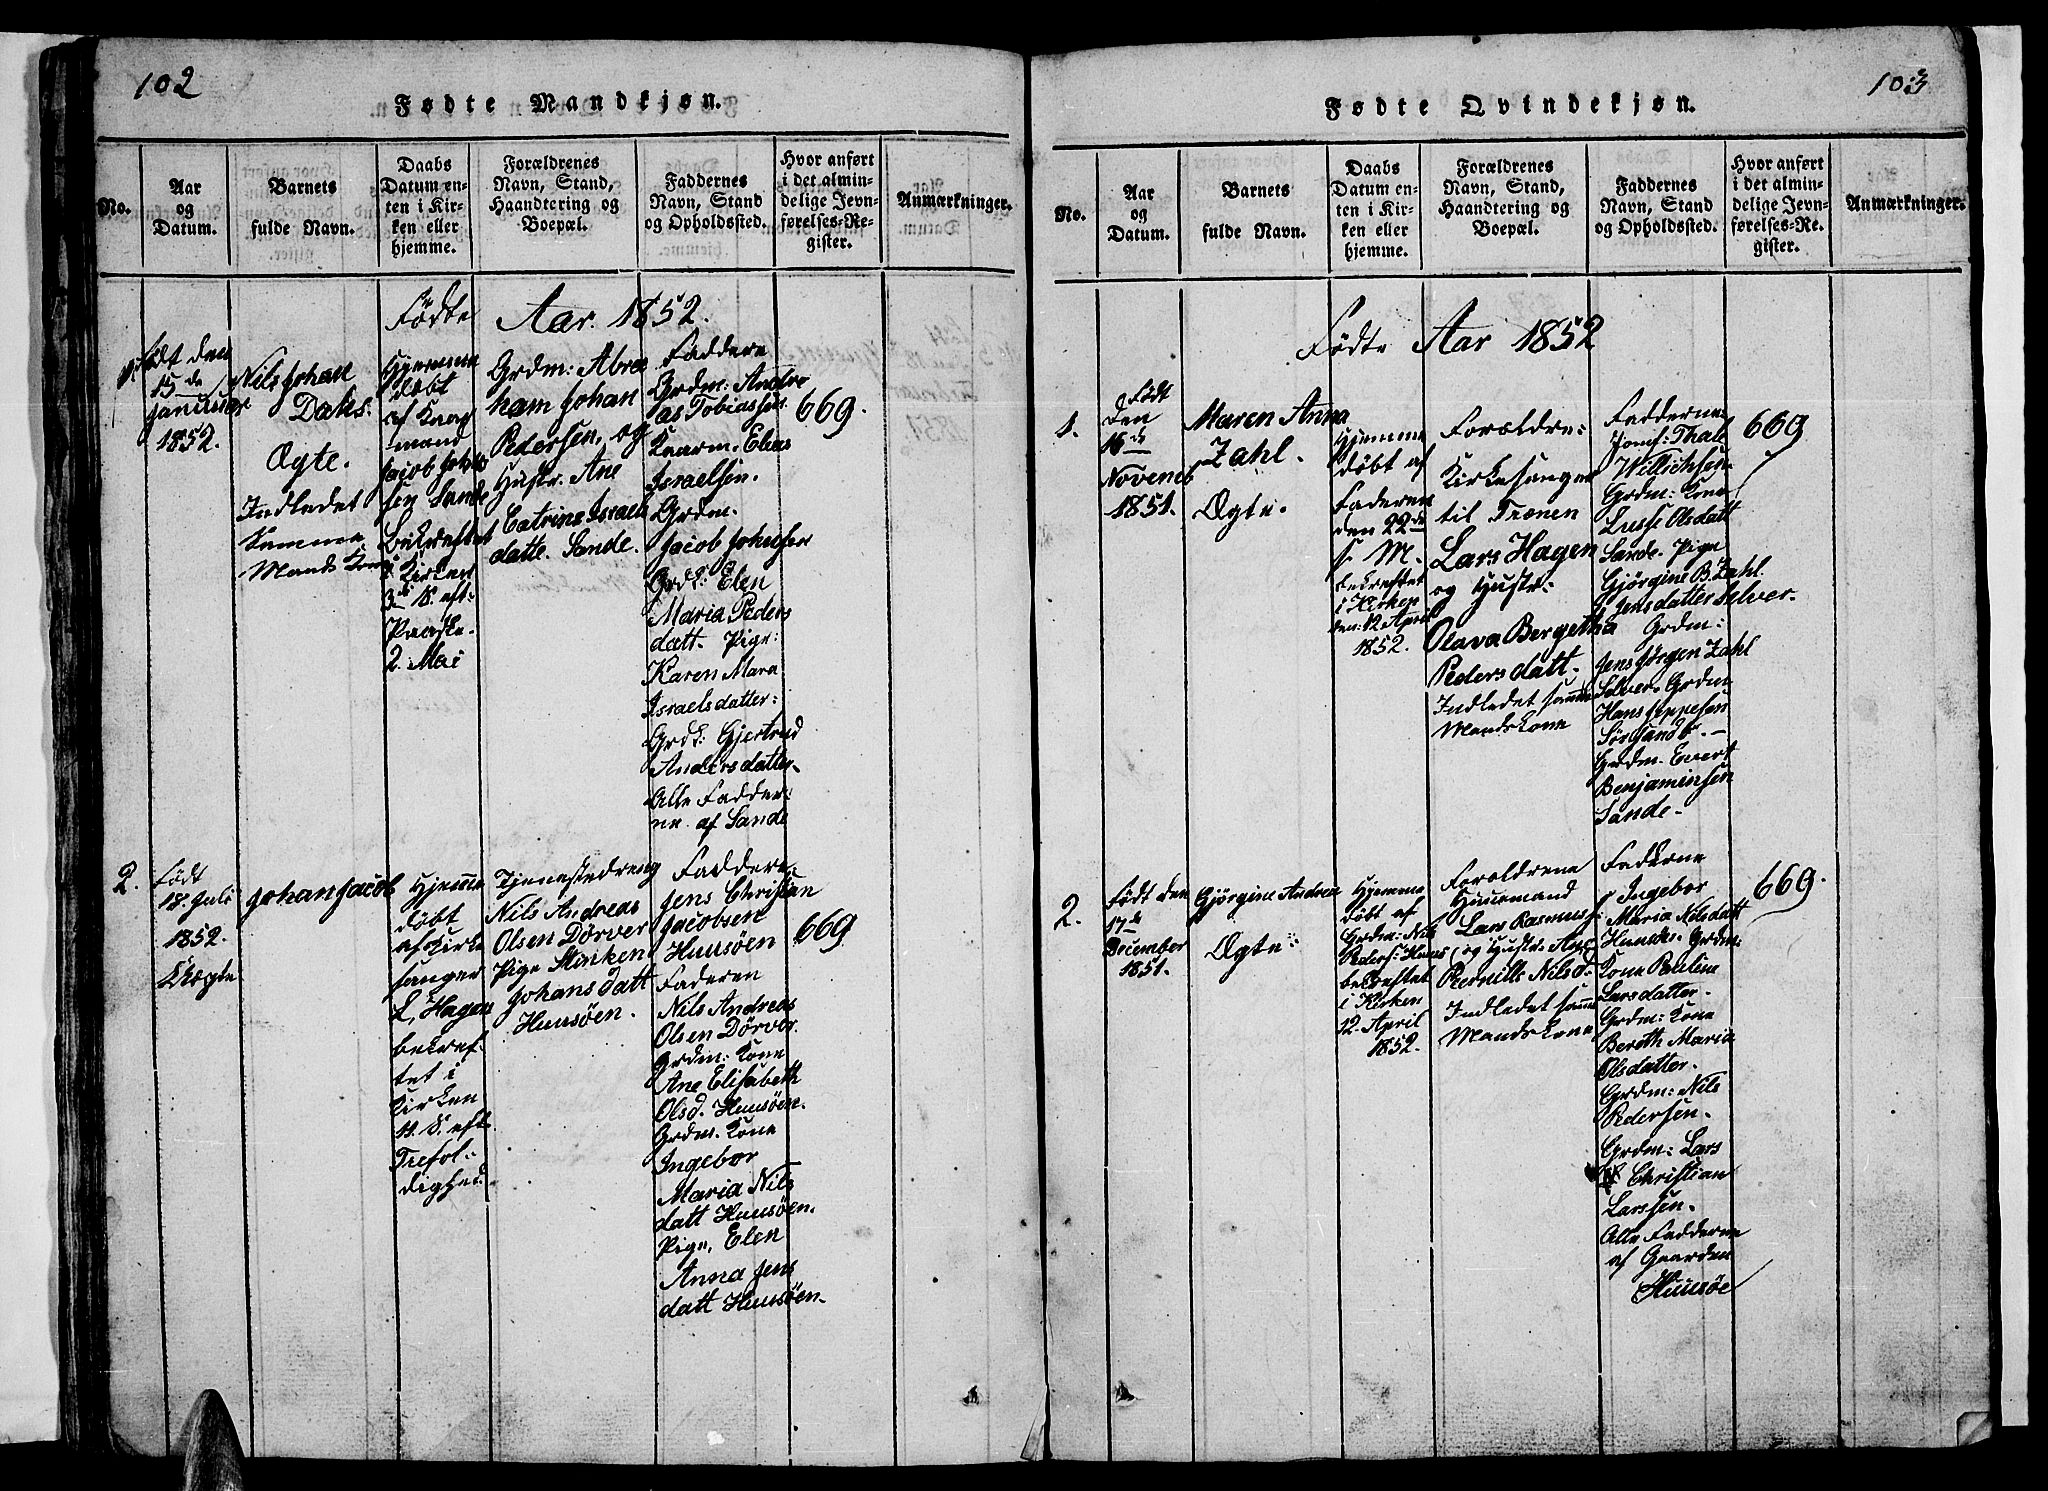 102
Fødte Mandkjøn.
No.
Aar
og
Datum.
Barnets
fulde Navn.
Daabs
Datum en-
ten i Kir-
ken eller
hjemme.
Forældrenes
Navn, Stand,
Haandtering og
Boepæl.
Faddernes
Navn, Stand
og Opholdssted.
Hvor anført
i det almin-
delige Jevn-
førelses-Re-
gister.
Anmærkninger.
Födte Aar. 1852.
1.
Födt den
15de
Januar
1852.
Nils Johan
Dahs.
Ægte.
Indledet
samme
Mands Kone
Hjemme
döbt
af Kaar
mand
Jacob Johan
sen Sande
bekræftet
i Kirken
3de S. eft.
Paaske.
2. Mai
Grdm: Abra
ham Johan
Pedersen, og
Hustr. Ane
Catrine Israels
datte. Sande.
Faddere
Grdm: Andre
as Tobiassen
Kaarm. Elias
Israelsen.
Grdm.
Jacob Johnsen
Grdk: Elen
Maria Peders
datt. Pige:
Karen Mara
Israelsdatter:
Grdk: Gjertrud
Andersdatter.
Alle Fadder:
ne af Sande
669.
2.
Födt
18. Juli
1852.
Uægte
Johan Jacob
Hjemme
döbt
af Kirke
sanger
L. Hagen
bekræf-
tet i
Kirken
11. S. eft.
Trefol-
dighed.
Tjenestedreng
Nils Andreas
Olsen Dörver
Pige Minken
Johansdatt
Huusöen.
Faddere
Jens Christian
Jacobsen
Huusöen
Faderen
Nils Andreas
Olsen Dörver.
Grdm: Kone
Ane Elisabeth
Olsd. Huusöen.
Grdm. Kone
Ingebor
Maria Nils
datt Huusöen.
Pige, Elen
Anna Jens
datt Huusöen.
669
103
Fødte Qvindekjøn.
No.
Aar
og
Datum.
Barnets
fulde Navn.
Daabs
Datum en-
ten i Kir-
ken eller
hjemme.
Forældrenes
Navn, Stand,
Haandtering og
Boepæl.
Faddernes
Navn, Stand
og Opholdssted.
Hvor anført
i det almin-
delige Jevn-
førelses-Re-
gister.
Anmærkninger.
Födte Aar 1852
1.
Födt
den
16de
Novemb
1851.
Maren Anna
Zahl.
Ægte.
Hjemme
döbt af
Faderen
den 22de
s. M.
bekræftet
i Kirken
den: 12 April
1852.
Forældre:
Kirkesanger
til Trænen
Lars Hagen
og Hustr:
Olava Bergetha
Pedersdatt.
Indledet samme
Mandskone
Fadderne
Jomf: Thale
Willichsen
Grdm: Kone
Lusse Olsdatt
Sande. Pige
Gjörgine B. Zahl.
Jensdatter Selver.
Grdm:
Jens Jörgen Zahl
Selver. Grdm
Hans Jeppesen
Sörsand. -
Grdm. Evert
Benjaminsen
Sande.
669
2.
Födt den
17de
December
1851.
Gjörgine Andrea
Ægte:
Hjemme
döbt af
Grdm: Nils
Peders: Huus
bekræftet
i Kirken
12. April
1852.
Forældrene
Huusmand
Lars Rasmus
og Hustr.
Pernille Nilsd:
Indledet samme
Mandskone
Fadderne
Ingebor
Maria Nilsdatt
Huusöe. Grdm:
Kone Pauline
Larsdatter.
Grdm: Kone
Bereth Maria
Olsdatter.
Grdm: Nils
Pedersen.
Grdm: Lars
Christian
Larssen.
Alle Fadderne
af Gaarden
Huusöe
669.